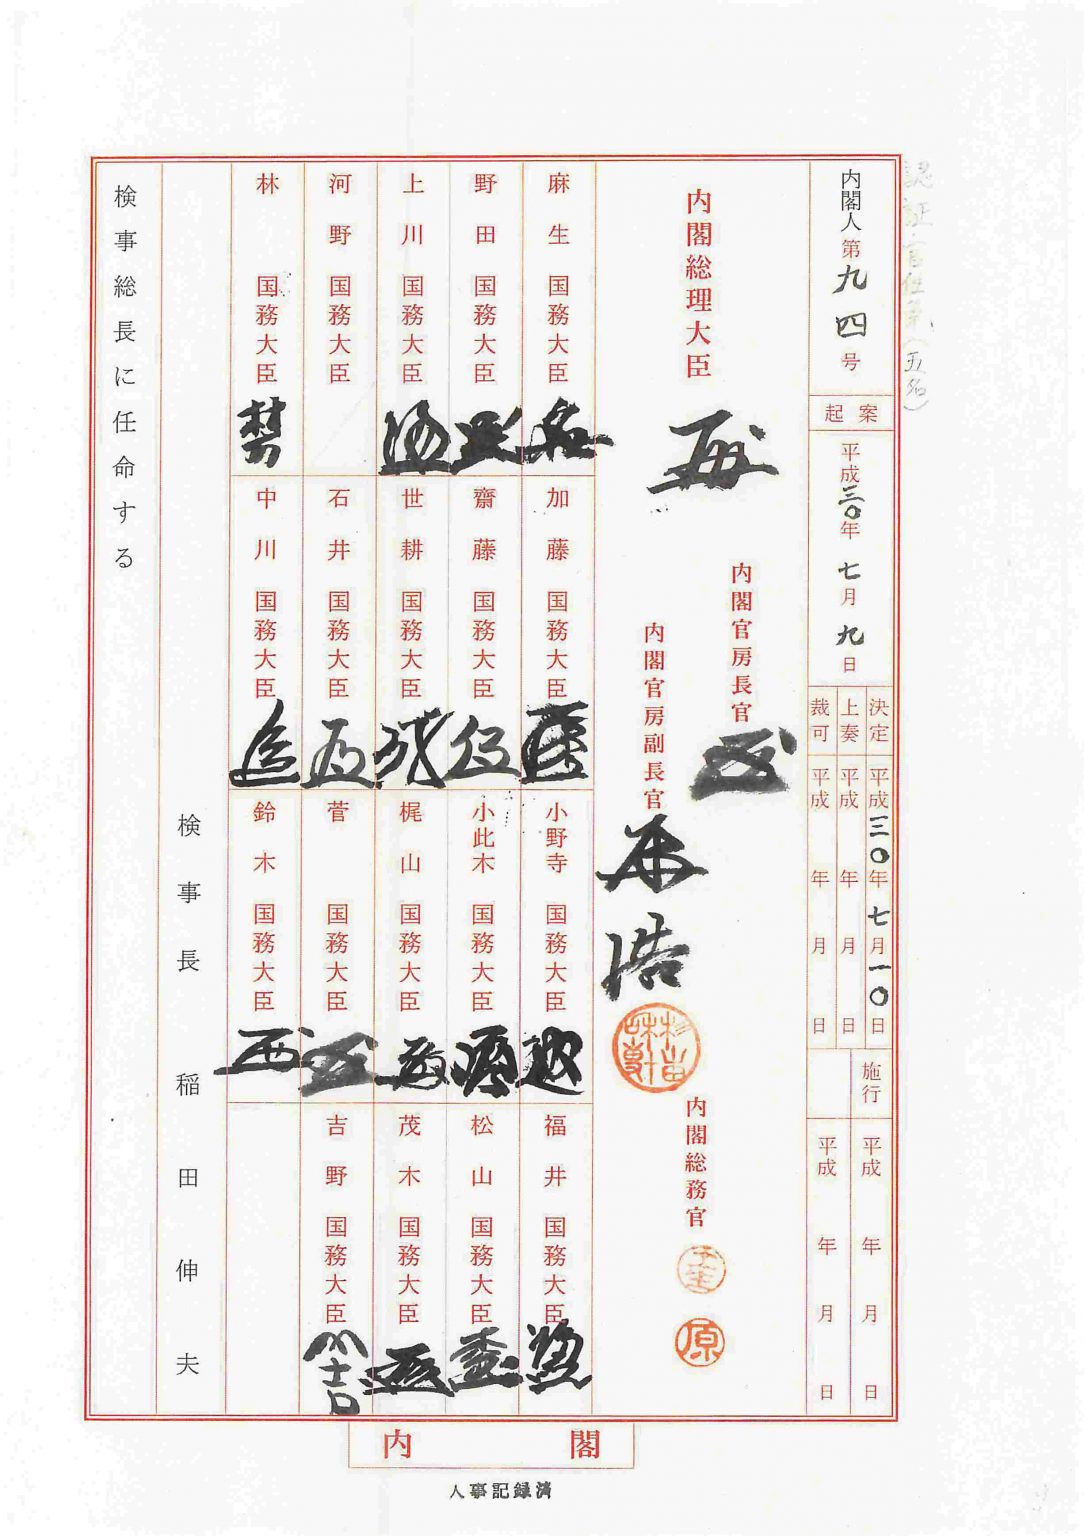 認証官任免（五名）
内閣人第九四号
起案
平成三〇年七月九日
決定 平成三〇年七月一〇日
上奏 平成 年 月 日
裁可 平成 年 月 日
施行
平成 年 月 日
平成 年 月 日
内閣総理大臣
内閣官房長官
内閣官房副長官
内閣総務官
原
麻生国務大臣
加藤国務大臣
小野寺国務大臣
福井国務大臣
野田国務大臣
齋藤国務大臣
小此木国務大臣
松山国務大臣
上川国務大臣
世耕国務大臣
梶山国務大臣
茂木国務大臣
河野国務大臣
石井国務大臣
菅国務大臣
吉野国務大臣
林国務大臣
中川国務大臣
鈴木国務大臣
検事長 稲田伸夫
検事総長に任命する
内閣
人事記録済